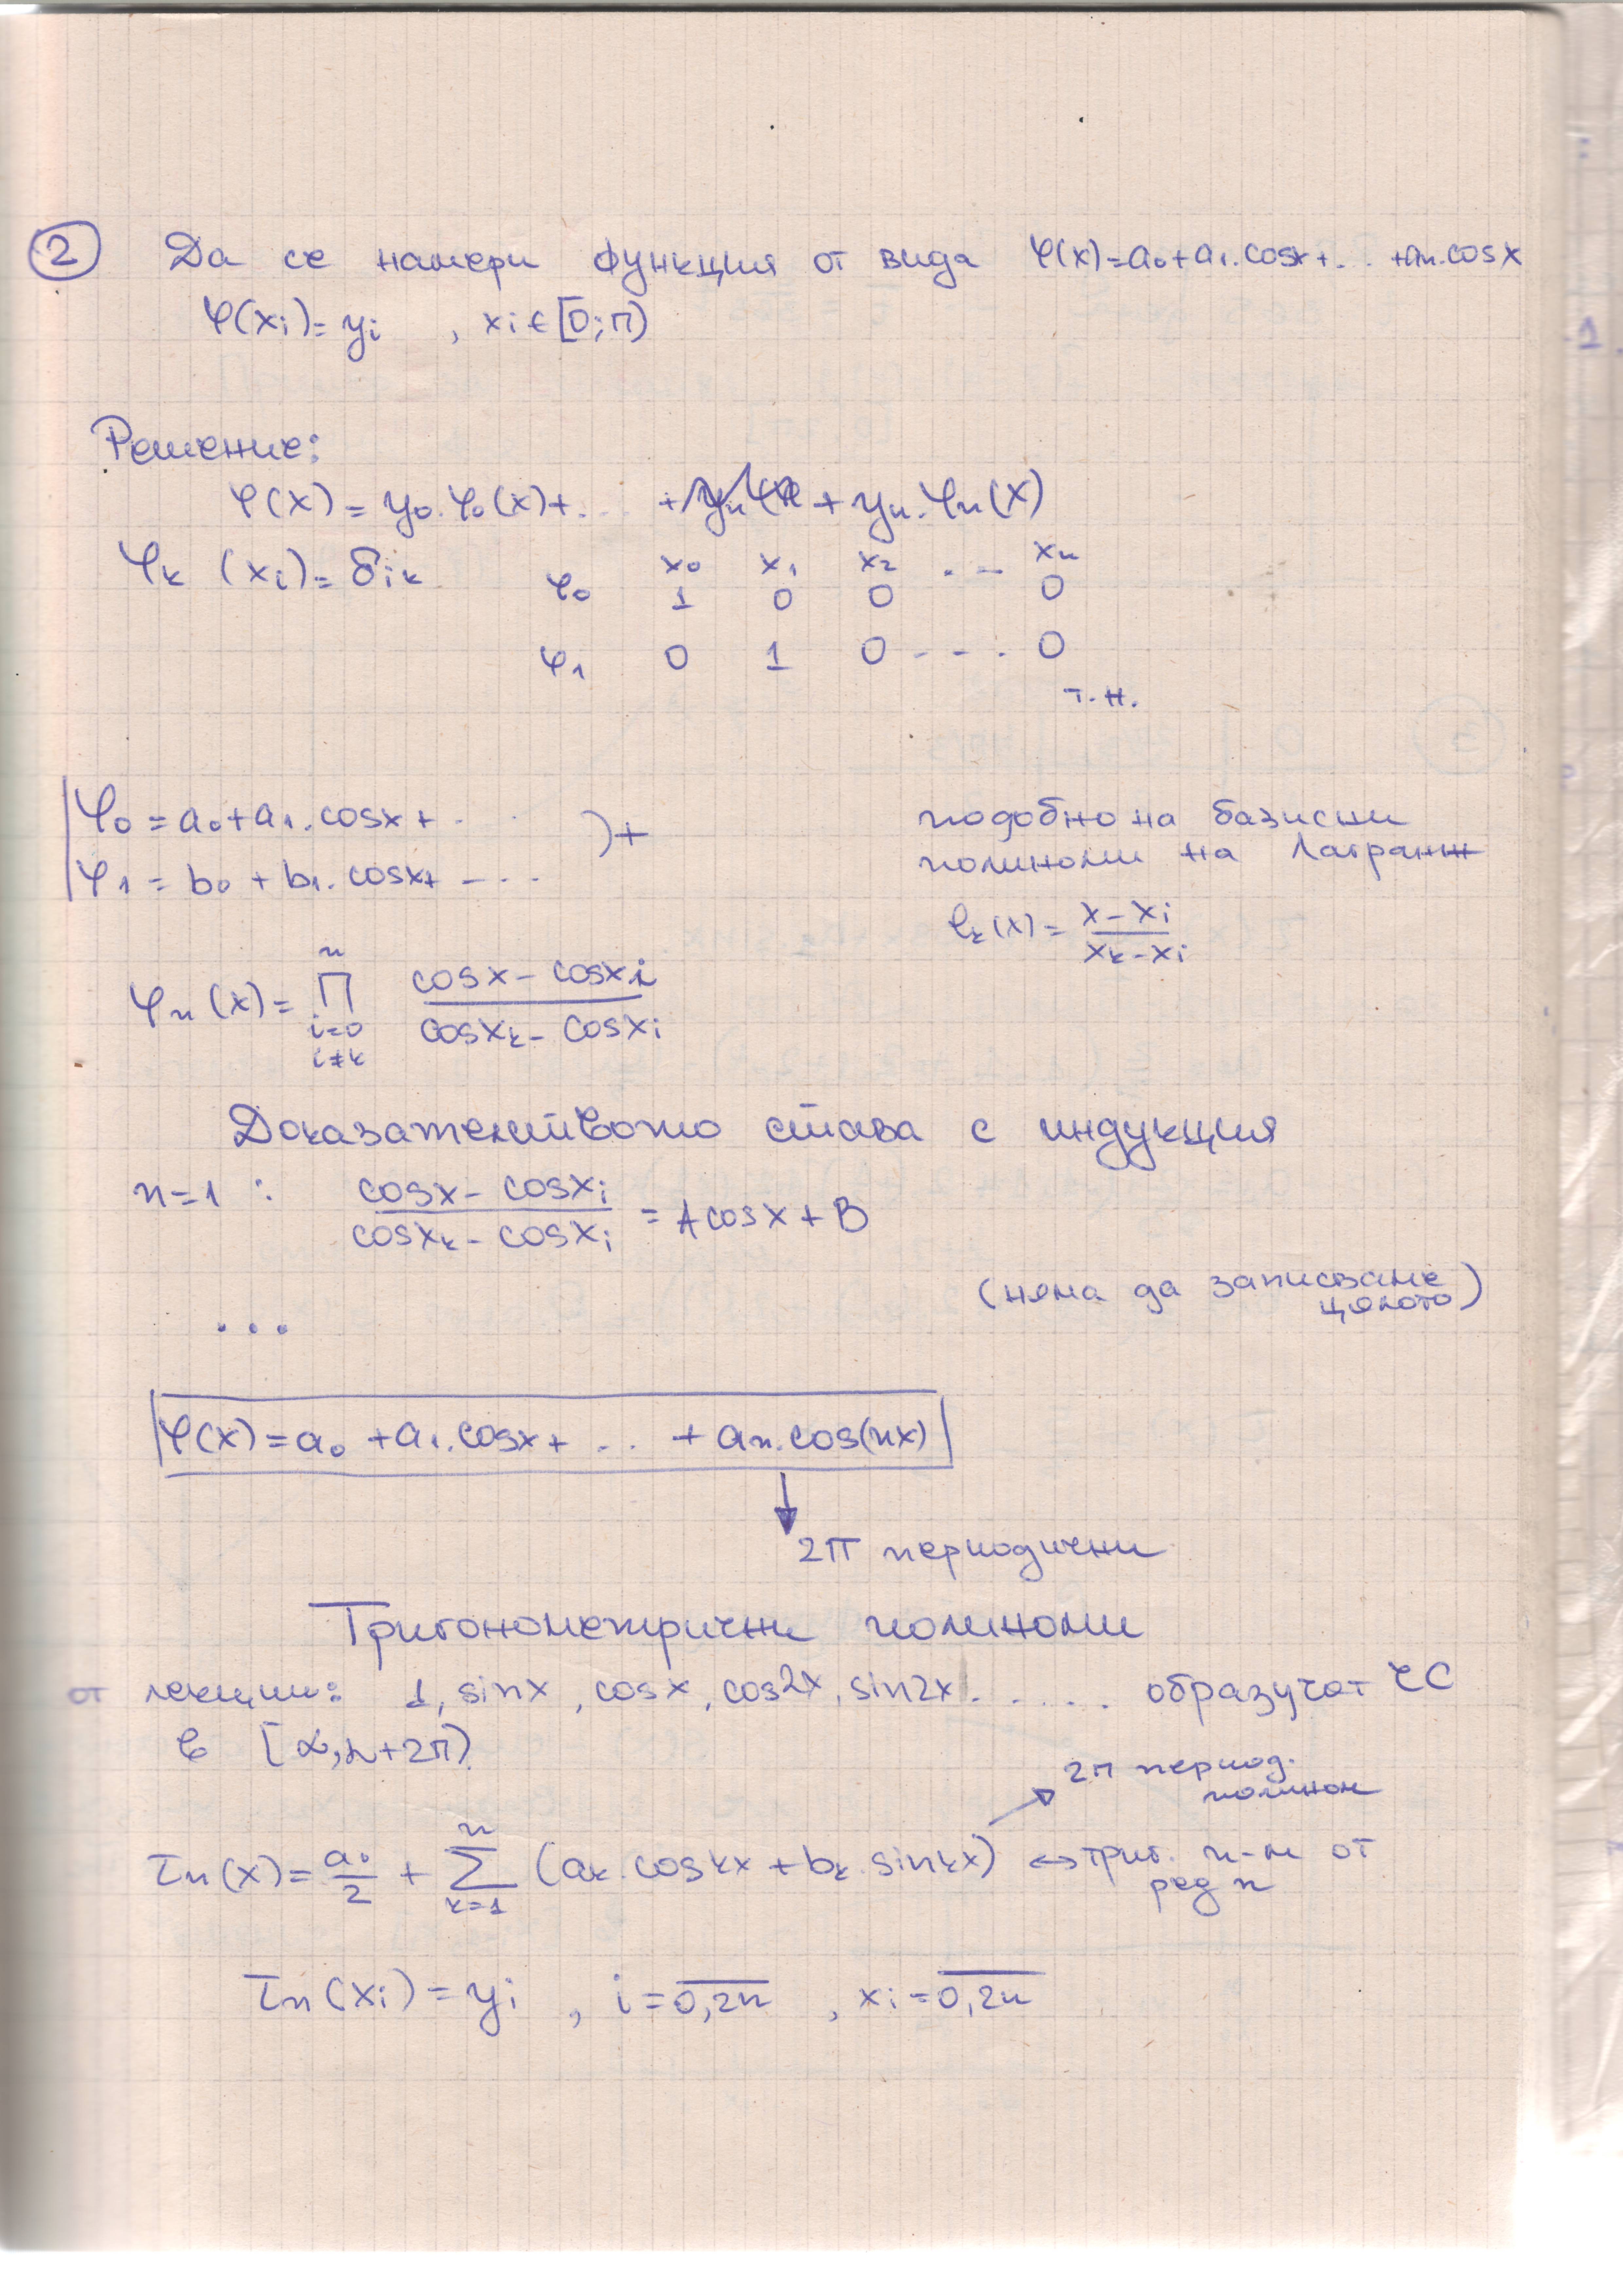 ② Да се намери функция от вида φ(x)=a₀+a₁.cosx+... +aₙ.cosx
φ(xᵢ)=yᵢ , xᵢ∈[0;π)
Решение:
φ(x)=y₀.φ₀(x)+... + yₙ.φₙ(x)
φₖ(xᵢ)=δᵢₖ
x₀ x₁ x₂ ... xₙ
φ₀ 1 0 0 0
φ₁ 0 1 0 ... 0
т.н.
φ₀=a₀+a₁.cosx+... )+
φ₁=b₀+b₁.cosx+...
подобно на базисни
полиноми на Лагранж
ℓₖ(x)=(x-xᵢ)/(xₖ-xᵢ)
φₙ(x)=∏ⁿ i=0 i≠k (cosx-cosxᵢ)/(cosxₖ-cosxᵢ)
Доказателството става с индукция
n=1 : (cosx-cosxᵢ)/(cosxₖ-cosxᵢ) = Acosx+B
(няма да записваме
цялото)
...
φ(x)=a₀+a₁.cosx+... +aₙ.cos(nx)
2π периодични
Тригонометрични полиноми
от лекции: 1, sinx, cosx, cos2x, sin2x ..... образуват ЧС
в [α,α+2π)
2π период.
полином
τₙ(x)=a₀/2 + ∑ⁿ k=1 (aₖ.coskx+bₖ.sinkx) ↔ триг. п-м от
ред n
τₙ(xᵢ)=yᵢ , i=0,2n , xᵢ=0,2n